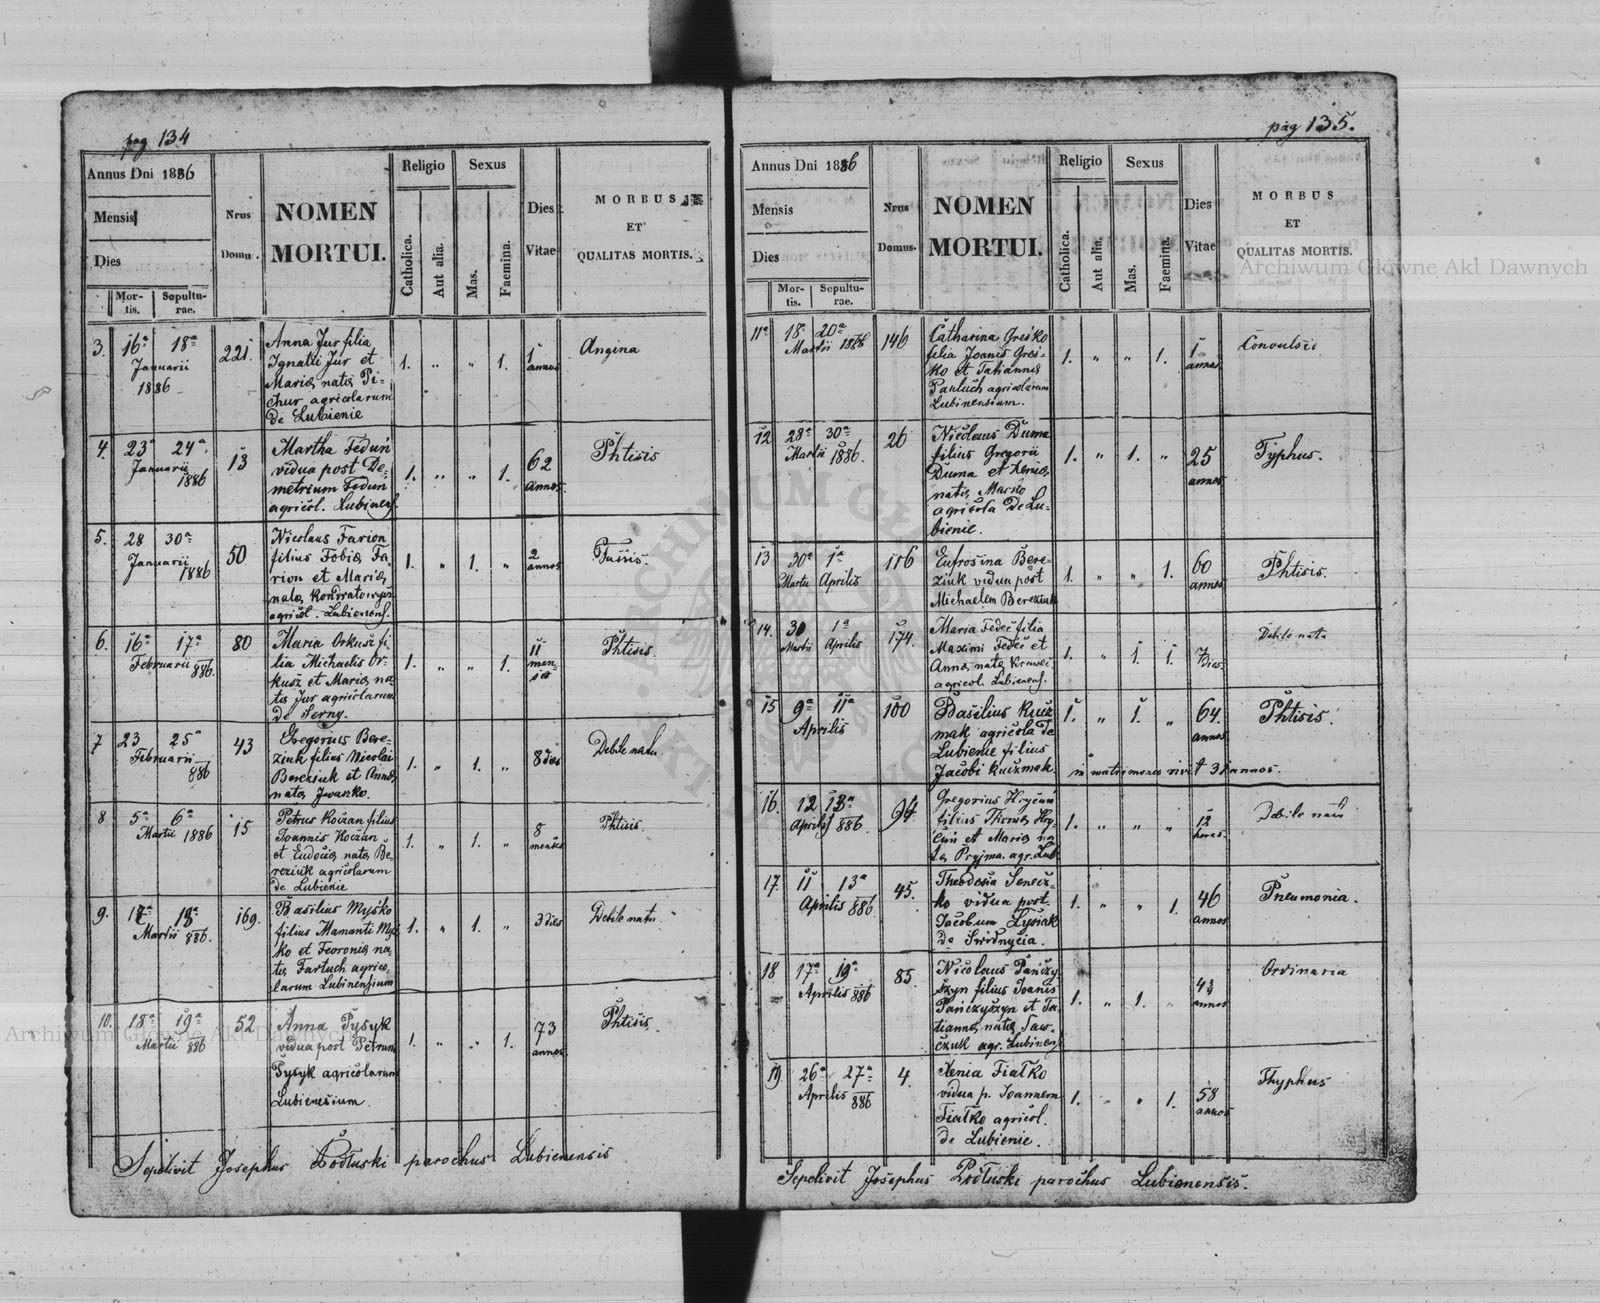 pag 134
Annus Dni 1886
Mensis
Dies
Mor-
tis.
Sepultu-
rae.
Nrus
Domu.
NOMEN
MORTUI.
Religio
Catholica.
Aut alia.
Sexus
Mas.
Faemina.
Dies
Vitae
MORBUS
ET
QUALITAS MORTIS.
3. 16a 18a
Januarii
1886
221.
Anna Jur filia
Ignatii Jur et
Maria nata Pi-
chur agricolarum
de Lubienie
1. " " 1.
1
annus
Angina
4. 23a 24a
Januarii
1886
13
Martha Feduń
vidua post De-
metrium Feduń
agricol. Lubinens.
1. " " 1.
62
annos.
Phtisis
5. 28 30a
Januarii
1886
50
Nicolaus Farion
filius Tobia Fa-
rion et Maria
nata
agricol. Lubienens.
1. " 1. "
2
annos
Tussis.
6. 16a 17a
Februarii
886.
80
Maria Orkusz fi-
lia Michaelis Or-
kusz et Maria na-
ta Jur agricolarum
de Serny.
1. " " 1.
11
men-
ses
Phtisis.
7 23 25a
Februarii
886
43
Gregorius Bere-
ziuk filius Nicolai
Bereziuk et Anna
nata Iwanko.
1. " 1. "
8 dies
Debile natu
8 5a 6a
Martii 1886
15
Petrus Koczan filius
Joannis Koczan
et Eudocia nata Be-
reziuk agricolarum
de Lubienie
1. " 1. "
8
menses
Phtisis.
9. 17a 18a
Martii 886.
169.
Basilius Myśko
filius Mamanti Myś
ko et Feoronia na
ta Fartuch agrico-
larum Lubinensium
1. " 1. "
3 dies
Debile natu.
10. 18a 19a
Martii 886
52
Anna Pysyk
vidua post Petrum
Pysyk agricolarum
Lubienesium.
1. " " 1.
73
annos
Phtisis
Sepelivit Josephus Podłuski parochus Lubienensis
pag 135.
Annus Dni 1886
Mensis
Dies
Mor-
tis.
Sepultu-
rae.
Nrus
Domus.
NOMEN
MORTUI.
Religio
Catholica.
Aut alia.
Sexus
Mas.
Faemina.
Dies
Vitae
MORBUS
ET
QUALITAS MORTIS.
11a 18a 20a
Martii 1886
146
Catharina Greśko
filia Joanis Greś-
ko et Tatianna
Pauluch agricolarum
Lubinensium.
1. " " 1.
1
annos
Convulsii
12 28a 30a
Martii 1886.
26
Nicolaus Duma
filius Gregorii
Duma et Xenia
nata Marko
agricola De Lu-
bienie.
1. " 1. "
25
annos
Typhus.
13 30a 1a
Martii Aprilis
116
Eufrosina Bere-
ziuk vidua post
Michaelem Bereziuk
1. " " 1.
60
annos
Phtisis.
14. 30 1a
Martii Aprilis
174.
Maria Fedec filia
Maximi Fedec et
Anna nata
agricol. Lubienens.
1. " 1. 1.
7
Dies.
Debile natu
15 9a 11a
Aprilis
100
Basilius Kucz-
mak agricola de
Lubienie filius
Jacobi Kuczmak. in matrimoneo vivit 31 annos.
1. " 1. "
64.
annos
Phtisis.
16. 12 13a
Aprilis 886.
94
Gregorius Hrycuń
filius Thoma Hry
cuń et Maria na
ta Pryjma. agr. Lub
1. " " "
12
horas.
Debile natu
17. 11 13a
Aprilis 886
45.
Theodosia Senecz-
ko vidua post
Jacobum Łysiak
de Swidnycia.
1. " " 1.
46
annos
Pneumonia.
18 17a 19a
Aprilis 886
85.
Nicolaus Pańczy
szyn filius Joanis
Pańczyszyn et Ta-
tianna nata Saw-
czuk agr. Lubinens
1. " 1. "
annos
Ordinaria
19 26a 27a
Aprilis 886
4.
Xenia Fiałko
vidua p. Joannem
Fiałko agricol.
de Lubienie.
1. " " 1.
58
annos
Thyphus
Sepelivit Josephus Podłuski parochus Lubienensis.
Archiwum Główne Akt Dawnych
Archiwum Główne Akt Dawnych